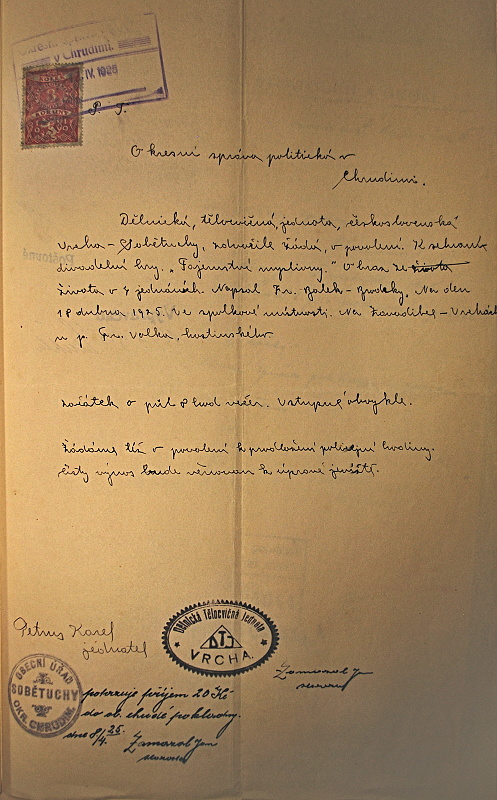 v Chrudimi.
IV. 1925
KOLEK
3
KORUNY
P. T.
Okresní správa politická v
Chrudimi.
Dělnická, tělocvičná, jednota, československá
Vrcha-Sobětuchy, zdvořile žádá, o povolení. K sehrání
divadelní hry, "Tajemství myslivny." Obraz ze života
života v 3 jednáních. Napsal Fr. Balek-Brodský, Na den
18 dubna 1925. Ve spolkové místnosti. Na
u p. Fr. Volka, hostinského.
začátek o půl 8 hod večer. Vstupné obvyklé.
Žádáme též o povolení k prodloužení policejní hodiny.
čistý výnos bude věnován k úpravě jeviště.
Petrus Karel
jednatel
Dělnická Tělocvičná Jednota
DTJ
VRCHA.
Zamazal J
starosta
OBECNÍ ÚŘAD
SOBĚTUCHY
OKR. CHRUDIM.
potvrzuje příjem 20 Kč
do ob. chudé pokladny.
dne 8/4. 25.
Zamazal Jan
starosta